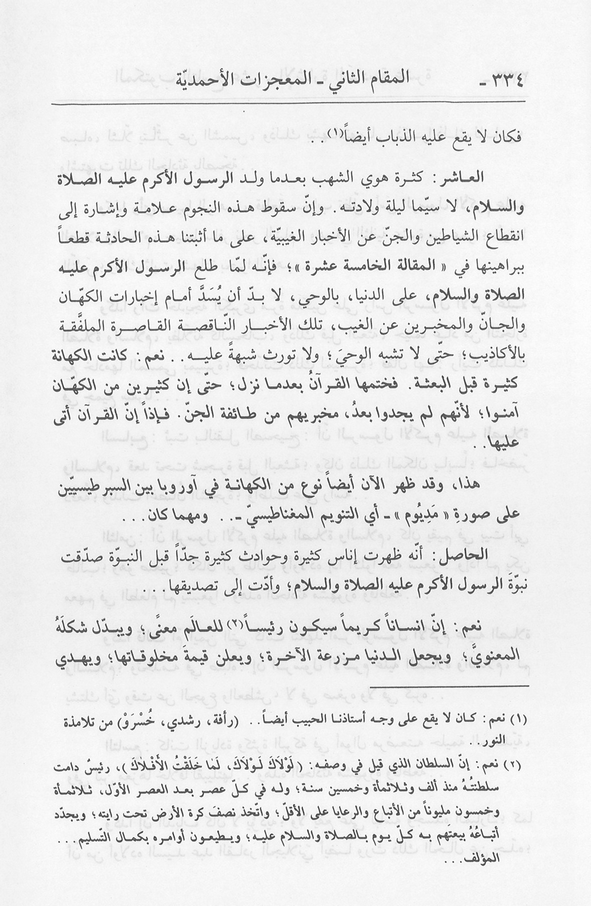 -٣٣٤ المقام الثاني - المعجزات الأحمديّة
فكان لا يقع عليه الذباب أيضاً(١)..
العـاشـر: كثـرة هوي الشهب بعدمـا ولـد الرسـول الأكـرم عليـه الصـلاة
والسـلام، لا سيّمـا ليلـة ولادتـه. وإنّ سقـوط هـذه النجـوم عـلامـة وإشـارة إلـى
انقطاع الشياطين والجنّ عن الأخبار الغيبيّة، على ما أثبتنا هـذه الحـادثـة قطعـاً
ببراهينها في «المقالة الخامسة عشرة»؛ فإنّـه لمّا طلع الرسـول الأكرم عليـه
الصلاة والسلام، على الدنيا، بالوحي، لا بـدّ أن يُسَدَّ أمام إخبارات الكهّـان
والجـانّ والمخبـريـن عـن الغيـب، تلـك الأخبـار النّـاقصـة القـاصـرة الملفَّقـة
بالأكاذيب؛ حتّى لا تشبه الوحيَ؛ ولا تورث شبهةً عليـه.. نعم: كانت الكهانة
كثيرة قبل البعثة. فختمها القرآنُ بعدما نزل؛ حتّى إن كثيرين من الكهّان
آمنـوا؛ لأنّهـم لم يجـدوا بعـدُ، مخبـريهـم من طـائفـة الجنّ. فـإذاً إنّ القـرآن أتى
عليها..
هذا، وقد ظهر الآن أيضاً نوع من الكهانة في آوروپا بين السبرطيسيّين
على صورةِ «مَدِيُوم» - أي التنويم المغناطيسيّ -.. ومهما كان...
الحاصل: أنّه ظهرت إناس كثيرة وحوادث كثيرة جدّاً قبل النبوّة صدّقت
نبوّةَ الرسول الأكرم عليه الصلاة والسلام؛ وأدّت إلى تصديقها...
نعم: إنّ انساناً كريماً سيكون رئيساً(٢) للعالَم معنًى؛ ويبدّل شكلَهُ
المعنويَّ؛ ويجعل الدنيا مزرعة الآخرة؛ ويعلن قيمةَ مخلوقاتها؛ ويهدي
(١) نعم: كـان لا يقع على وجـه أستاذنـا الحبيب أيضـاً... (رأفة، رشدي، خُسْرَوْ) من تلامذة
النور..
(٢) نعم: إنّ السلطان الذي قيل في وصفه: (لَوْلَاكَ لَوْلَاكَ، لَمَا خَلَقْتُ الأَفْلَاكَ)، رئيسٌ دامت
سلطنتُهُ منذ ألف وثلاثمأة وخمسين سنة؛ وله في كلّ عصر بعد العصر الأوّل، ثلاثمأة
وخمسون مليوناً من الأتباع والرعايا على الأقلّ؛ واتّخذ نصف كرة الأرض تحت رايته؛ ويجدّد
أتباعُهُ بيعتهم به كلّ يوم بالصلاة والسلام عليه؛ ويطيعون أوامره بكمال التسليم...
المؤلف...